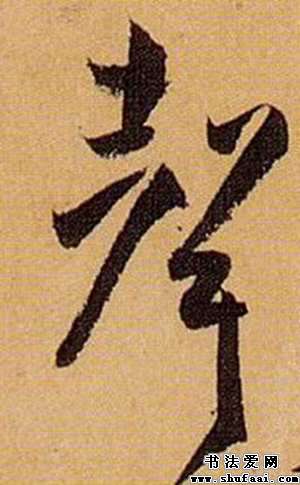 聲
书法爱网
www.shufaai.com